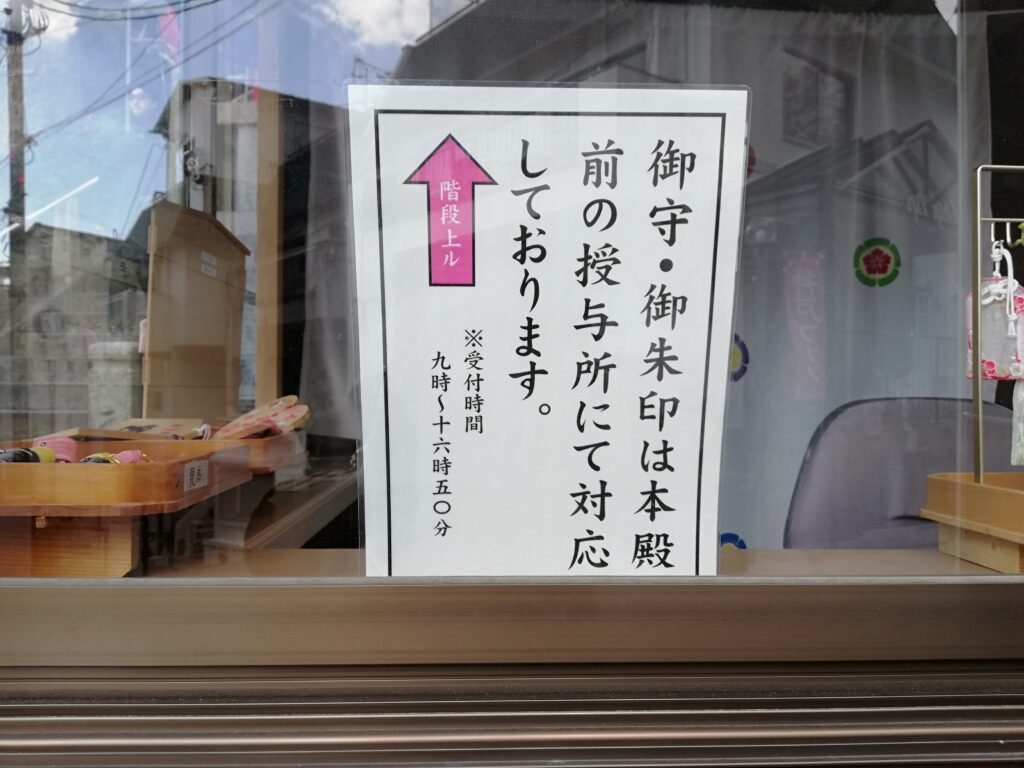 御守・御朱印は本殿
前の授与所にて対応
しております。
階段上ル
※受付時間
九時～十六時五〇分
見本